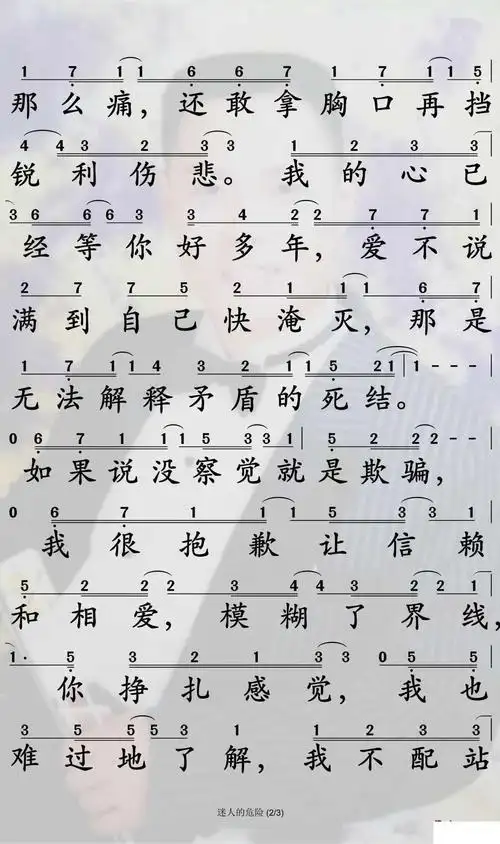 1 7 1 1 6 6 7 1 7 1 1 5
那么痛，还敢拿胸口再挡
4 4 3 2 3 3 1 2 3 3
锐利伤悲。我的心已
3 6 6 6 3 3 4 2 2 7 7 1
经等你好多年，爱不说
2 7 7 5 2 1 1 1 6 7
满到自己快淹灭，那是
1 7 1 1 4 3 2 1 1 5 2 1 1 - - -
无法解释矛盾的死结。
0 6 7 1 1 1 5 3 3 1 5 2 2 2 - -
如果说没察觉就是欺骗，
0 6 7 1 1 1 5 3 3 1
我很抱歉让信赖
5 2 2 2 3 4 4 3 2 2 1
和相爱，模糊了界线，
1· 5 3 2 1 3 3 0 5 5
你挣扎感觉，我也
3 5 5 5 3 1 1 2 3 3
难过地了解，我不配站
迷人的危险 (2/3)